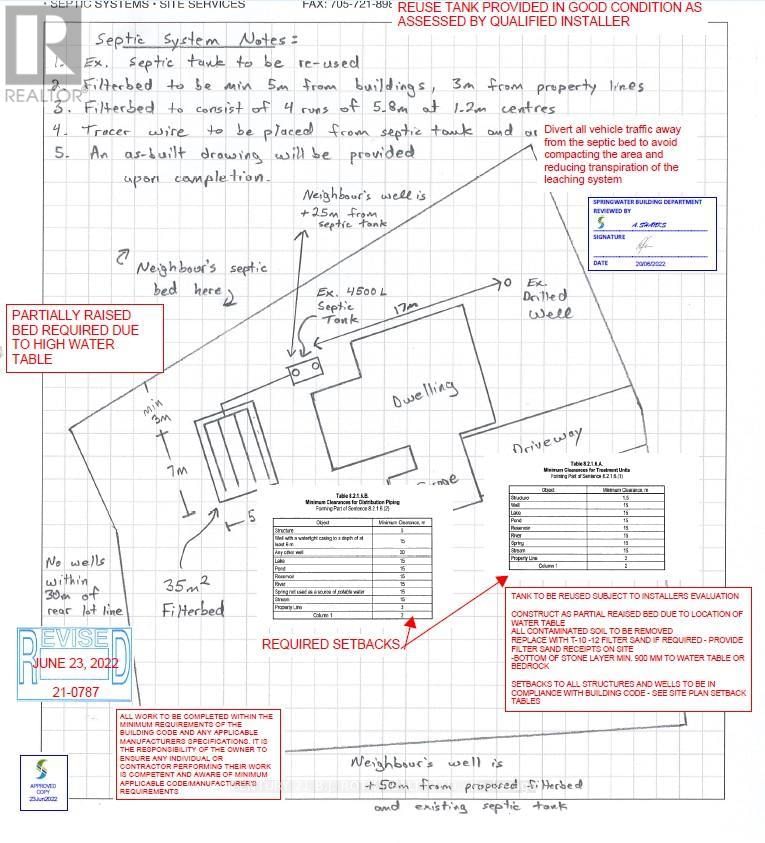 SEPTIC SYSTEMS • SITE SERVICES
FAX: 705-721-898
REUSE TANK PROVIDED IN GOOD CONDITION AS
ASSESSED BY QUALIFIED INSTALLER
R
REALTOR®
Septic System Notes:
1. Ex. Septic tank to be re-used
2. Filterbed to be min 5m from buildings, 3m from property lines
3. Filterbed to consist of 4 runs of 5.8m at 1.2m centres
4. Tracer wire to be placed from septic tank and
5. An as-built drawing will be provided
upon completion.
Divert all vehicle traffic away
from the septic bed to avoid
compacting the area and
reducing transpiration of the
leaching system
SPRINGWATER BUILDING DEPARTMENT
REVIEWED BY
SIGNATURE
DATE 20/06/2022
Neighbour's well is
+25m from
septic tank
Neighbour's septic
bed here
Ex. 4500 L
Septic
Tank
17m
Ex.
Drilled
Well
PARTIALLY RAISED
BED REQUIRED DUE
TO HIGH WATER
TABLE
min
3m
7m
5
Dwelling
Driveway
Table 8.2.1.6.A.
Minimum Clearances for Treatment Units
Forming Part of Sentence 8.2.1.6.(1)
Object Minimum Clearance, m
Structure 1.5
Well 15
Lake 15
Pond 15
Reservoir 15
River 15
Spring 15
Stream 15
Property Line 3
Column 1 2
Table 8.2.1.6.B.
Minimum Clearances for Distribution Piping
Forming Part of Sentence 8.2.1.6.(2)
Object Minimum Clearance, m
Structure 5
Well with a watertight casing to a depth of at
least 6 m 15
Any other well 30
Lake 15
Pond 15
Reservoir 15
River 15
Spring not used as a source of potable water 15
Stream 15
Property Line 3
Column 1 2
No wells
within
30m of
rear lot line
35m²
Filterbed
REQUIRED SETBACKS
TANK TO BE REUSED SUBJECT TO INSTALLERS EVALUATION
CONSTRUCT AS PARTIAL REAISED BED DUE TO LOCATION OF
WATER TABLE
ALL CONTAMINATED SOIL TO BE REMOVED
REPLACE WITH T-10 -12 FILTER SAND IF REQUIRED - PROVIDE
FILTER SAND RECEIPTS ON SITE
-BOTTOM OF STONE LAYER MIN. 900 MM TO WATER TABLE OR
BEDROCK
SETBACKS TO ALL STRUCTURES AND WELLS TO BE IN
COMPLIANCE WITH BUILDING CODE - SEE SITE PLAN SETBACK
TABLES
REVISED
JUNE 23, 2022
21-0787
ALL WORK TO BE COMPLETED WITHIN THE
MINIMUM REQUIREMENTS OF THE
BUILDING CODE AND ANY APPLICABLE
MANUFACTURERS SPECIFICATIONS. IT IS
THE RESPONSIBILITY OF THE OWNER TO
ENSURE ANY INDIVIDUAL OR
CONTRACTOR PERFORMING THEIR WORK
IS COMPETENT AND AWARE OF MINIMUM
APPLICABLE CODE/MANUFACTURER'S
REQUIREMENTS
APPROVED
COPY
23Jun2022
Neighbour's well is
+50m from proposed filterbed
and existing septic tank